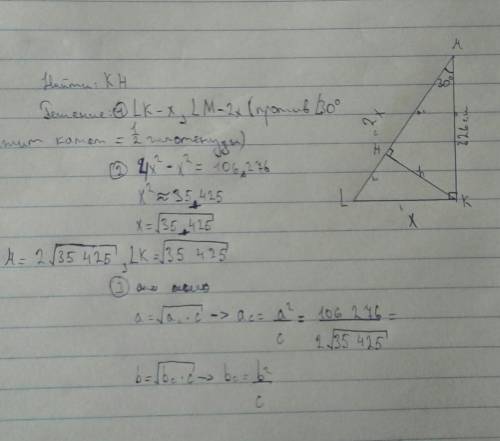 Найти: KH
Решение: ① LK - x, LM - 2x (против ∠30°
жит катет = 1/2 гипотенузы)
② 4x² - x² = 106,276
x² ≈ 35,425
x = √35,425
= 2√35 425, LK = √35 425
③
a = √(a_c · c) → a_c = a²/c = 106 276/2√35 425 =
b = √(b_c · c) → b_c = b²/c
30°
2x
H
h
L
K
x